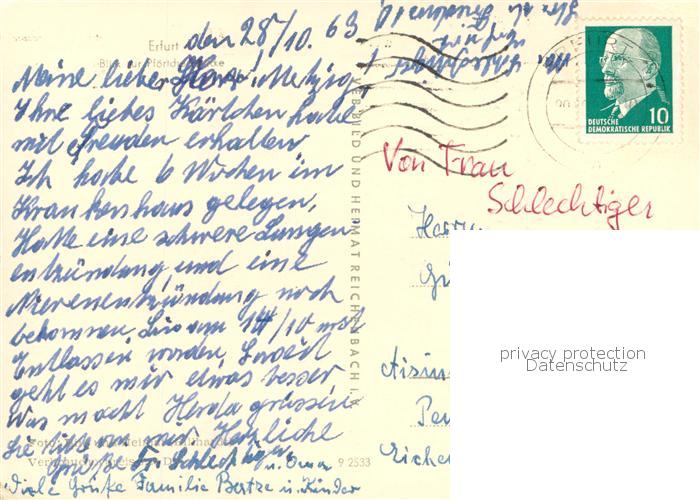 Erfurt
den 28/10. 63
Meine lieber Herr Metzig
Ihre liebes Kärtchen habe
mit Freuden erhalten
Ich habe 6 Wochen im
Krankenhaus gelegen,
Hatte eine schwere Lungen
entzündung und eine
Nierenentzündung noch
bekommen, bin am 14/10 erst
Entlassen worden, Soweit
geht es mir etwas besser
Was macht Herda grüssen
Sie bitte von mir Herzliche
Grüße Fr. Schlechtiger
u. Oma
Viele Grüße Familie Bertze u. Kinder
9 2533
VEB BILD UND HEIMAT REICHENBACH I. V.
DEUTSCHE
DEMOKRATISCHE REPUBLIK
10
Von Frau
Schlechtiger
privacy protection
Datenschutz